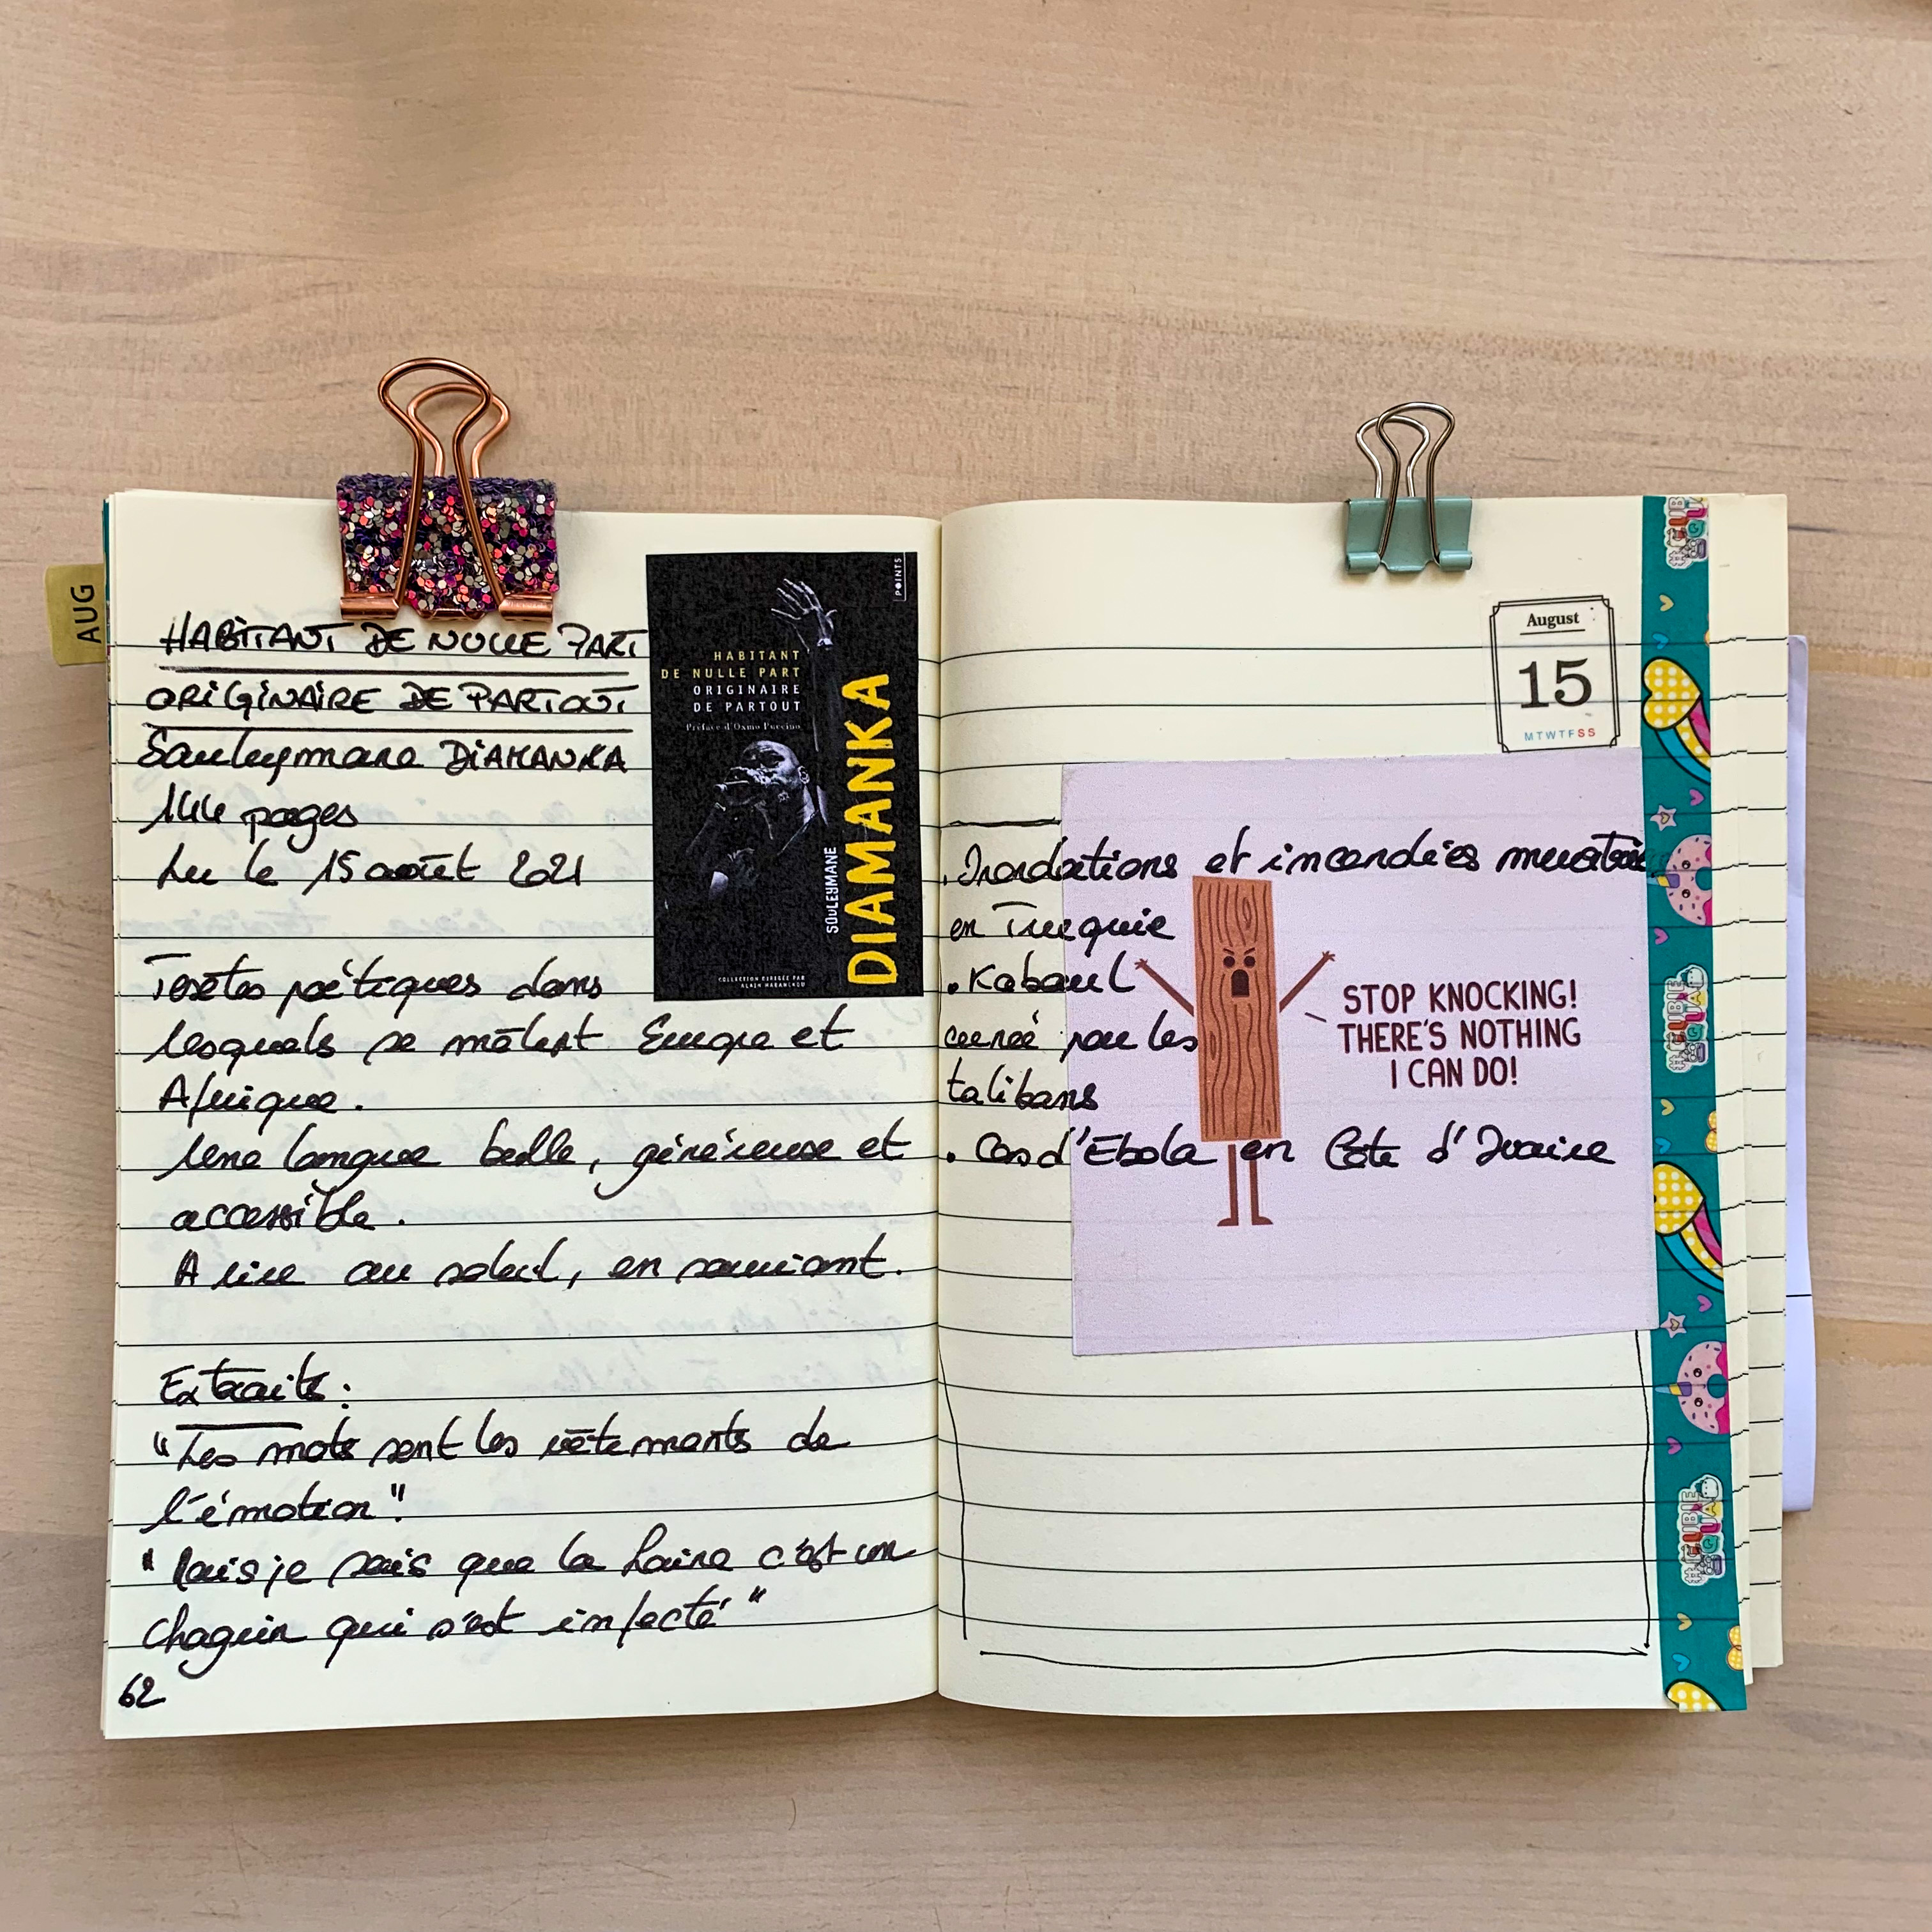 AUG
HABITANT DE NULLE PART
ORIGINAIRE DE PARTOUT
Souleymane DIAMANKA
144 pages
Lu le 15 août 2021
Textes poétiques dans
lesquels se mêlent Europe et
Afrique.
Une langue belle, généreuse et
accessible.
A lire au soleil, en souriant.
Extraits :
"Les mots sont les vêtements de
l'émotion"
"Mais je sais que la haine c'est un
chagrin qui s'est infecté"
62
POINTS
HABITANT
DE NULLE PART
ORIGINAIRE
DE PARTOUT
Préface d'Oxmo Puccino
SOULEYMANE
DIAMANKA
COLLECTION DIRIGÉE PAR
ALAIN MABANCKOU
August
15
MTWTFSS
. Inondations et incendies meurtriers
en Turquie
. Kaboul
cerné par les
talibans
. Cas d'Ebola en Côte d'Ivoire
STOP KNOCKING!
THERE'S NOTHING
I CAN DO!